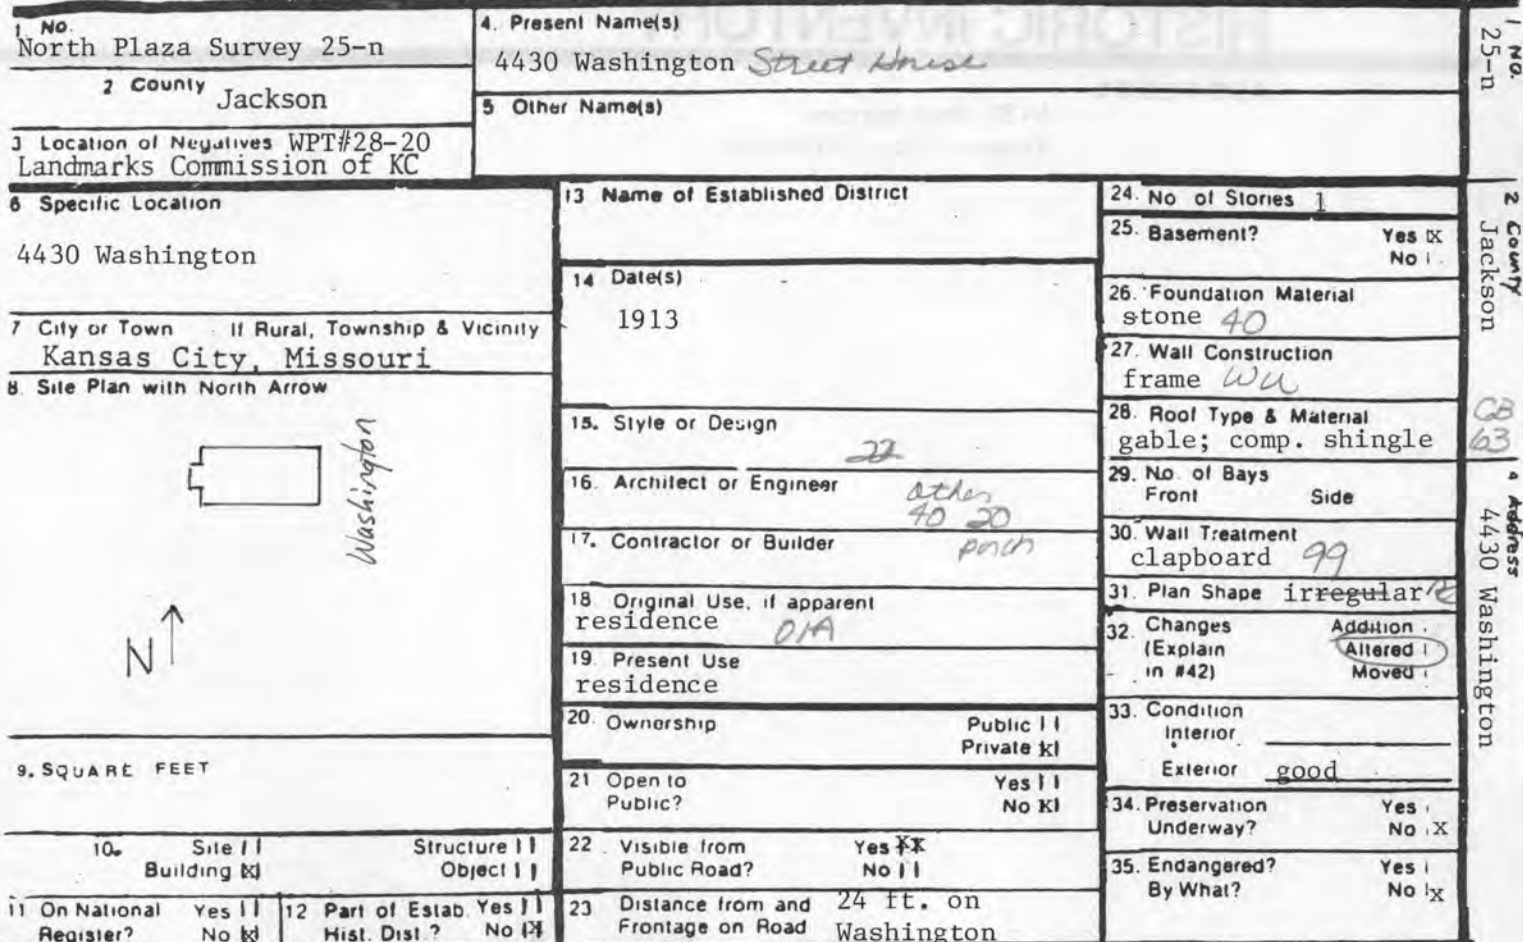 1. No.
North Plaza Survey 25-n
2 County Jackson
3 Location of Negatives WPT#28-20
Landmarks Commission of KC
4. Present Name(s)
4430 Washington Street House
5 Other Name(s)
6 Specific Location
4430 Washington
7 City or Town If Rural, Township & Vicinity
Kansas City, Missouri
8. Site Plan with North Arrow
Washington
N
9. SQUARE FEET
10. Site | | Structure | |
Building |X| Object | |
11 On National Yes | |
Register? No |X|
12 Part of Estab. Yes | |
Hist. Dist.? No |X|
13 Name of Established District
14 Date(s)
1913
15. Style or Design
22
16. Architect or Engineer
other
40 20
porch
17. Contractor or Builder
18 Original Use, if apparent
residence 01A
19. Present Use
residence
20. Ownership Public | |
Private |X|
21 Open to Yes | |
Public? No |X|
22. Visible from Yes XX
Public Road? No | |
23 Distance from and 24 ft. on
Frontage on Road Washington
24. No of Stories 1
25. Basement? Yes |X
No | .
26. Foundation Material
stone 40
27. Wall Construction
frame WU
28. Roof Type & Material
gable; comp. shingle
29. No. of Bays
Front Side
30. Wall Treatment
clapboard 99
31. Plan Shape irregular
32. Changes Addition
(Explain Altered
in #42) Moved
33. Condition
Interior
Exterior good
34. Preservation Yes
Underway? No X
35. Endangered? Yes
By What? No X
1 No.
25-n
2 County
Jackson
GB
63
4 Address
4430 Washington